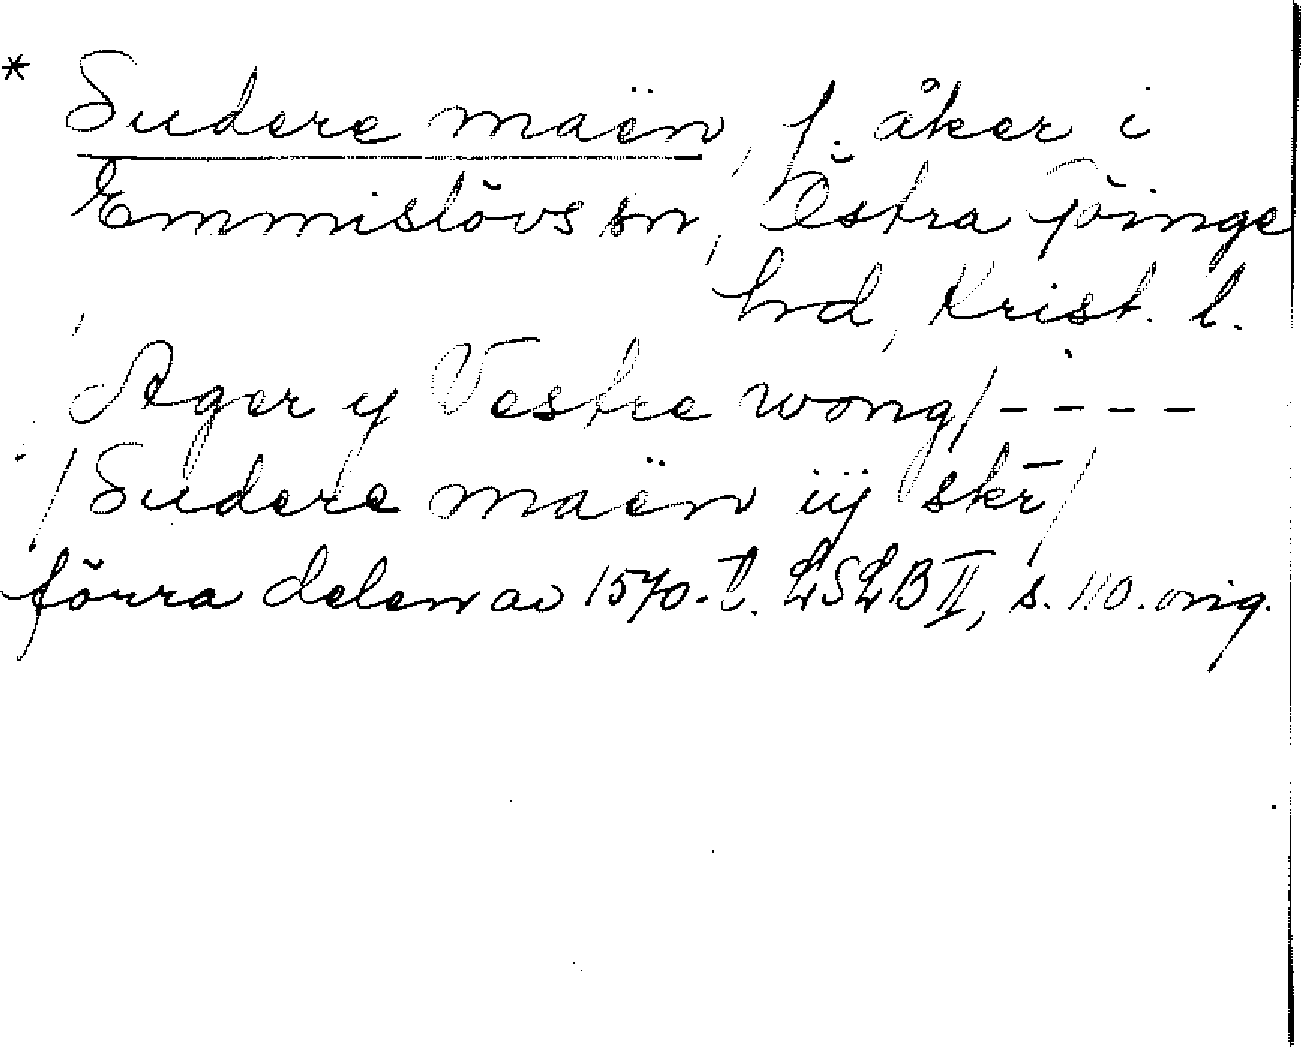 * Sudere maën, f. åker i
Emmislövs sn, Östra Göinge
hd, Krist. l.
Ager y Vestre wong/----
/Sudere maën iij skr̄/
förra delen av 1570-t. LSLB II, s. 110. orig.